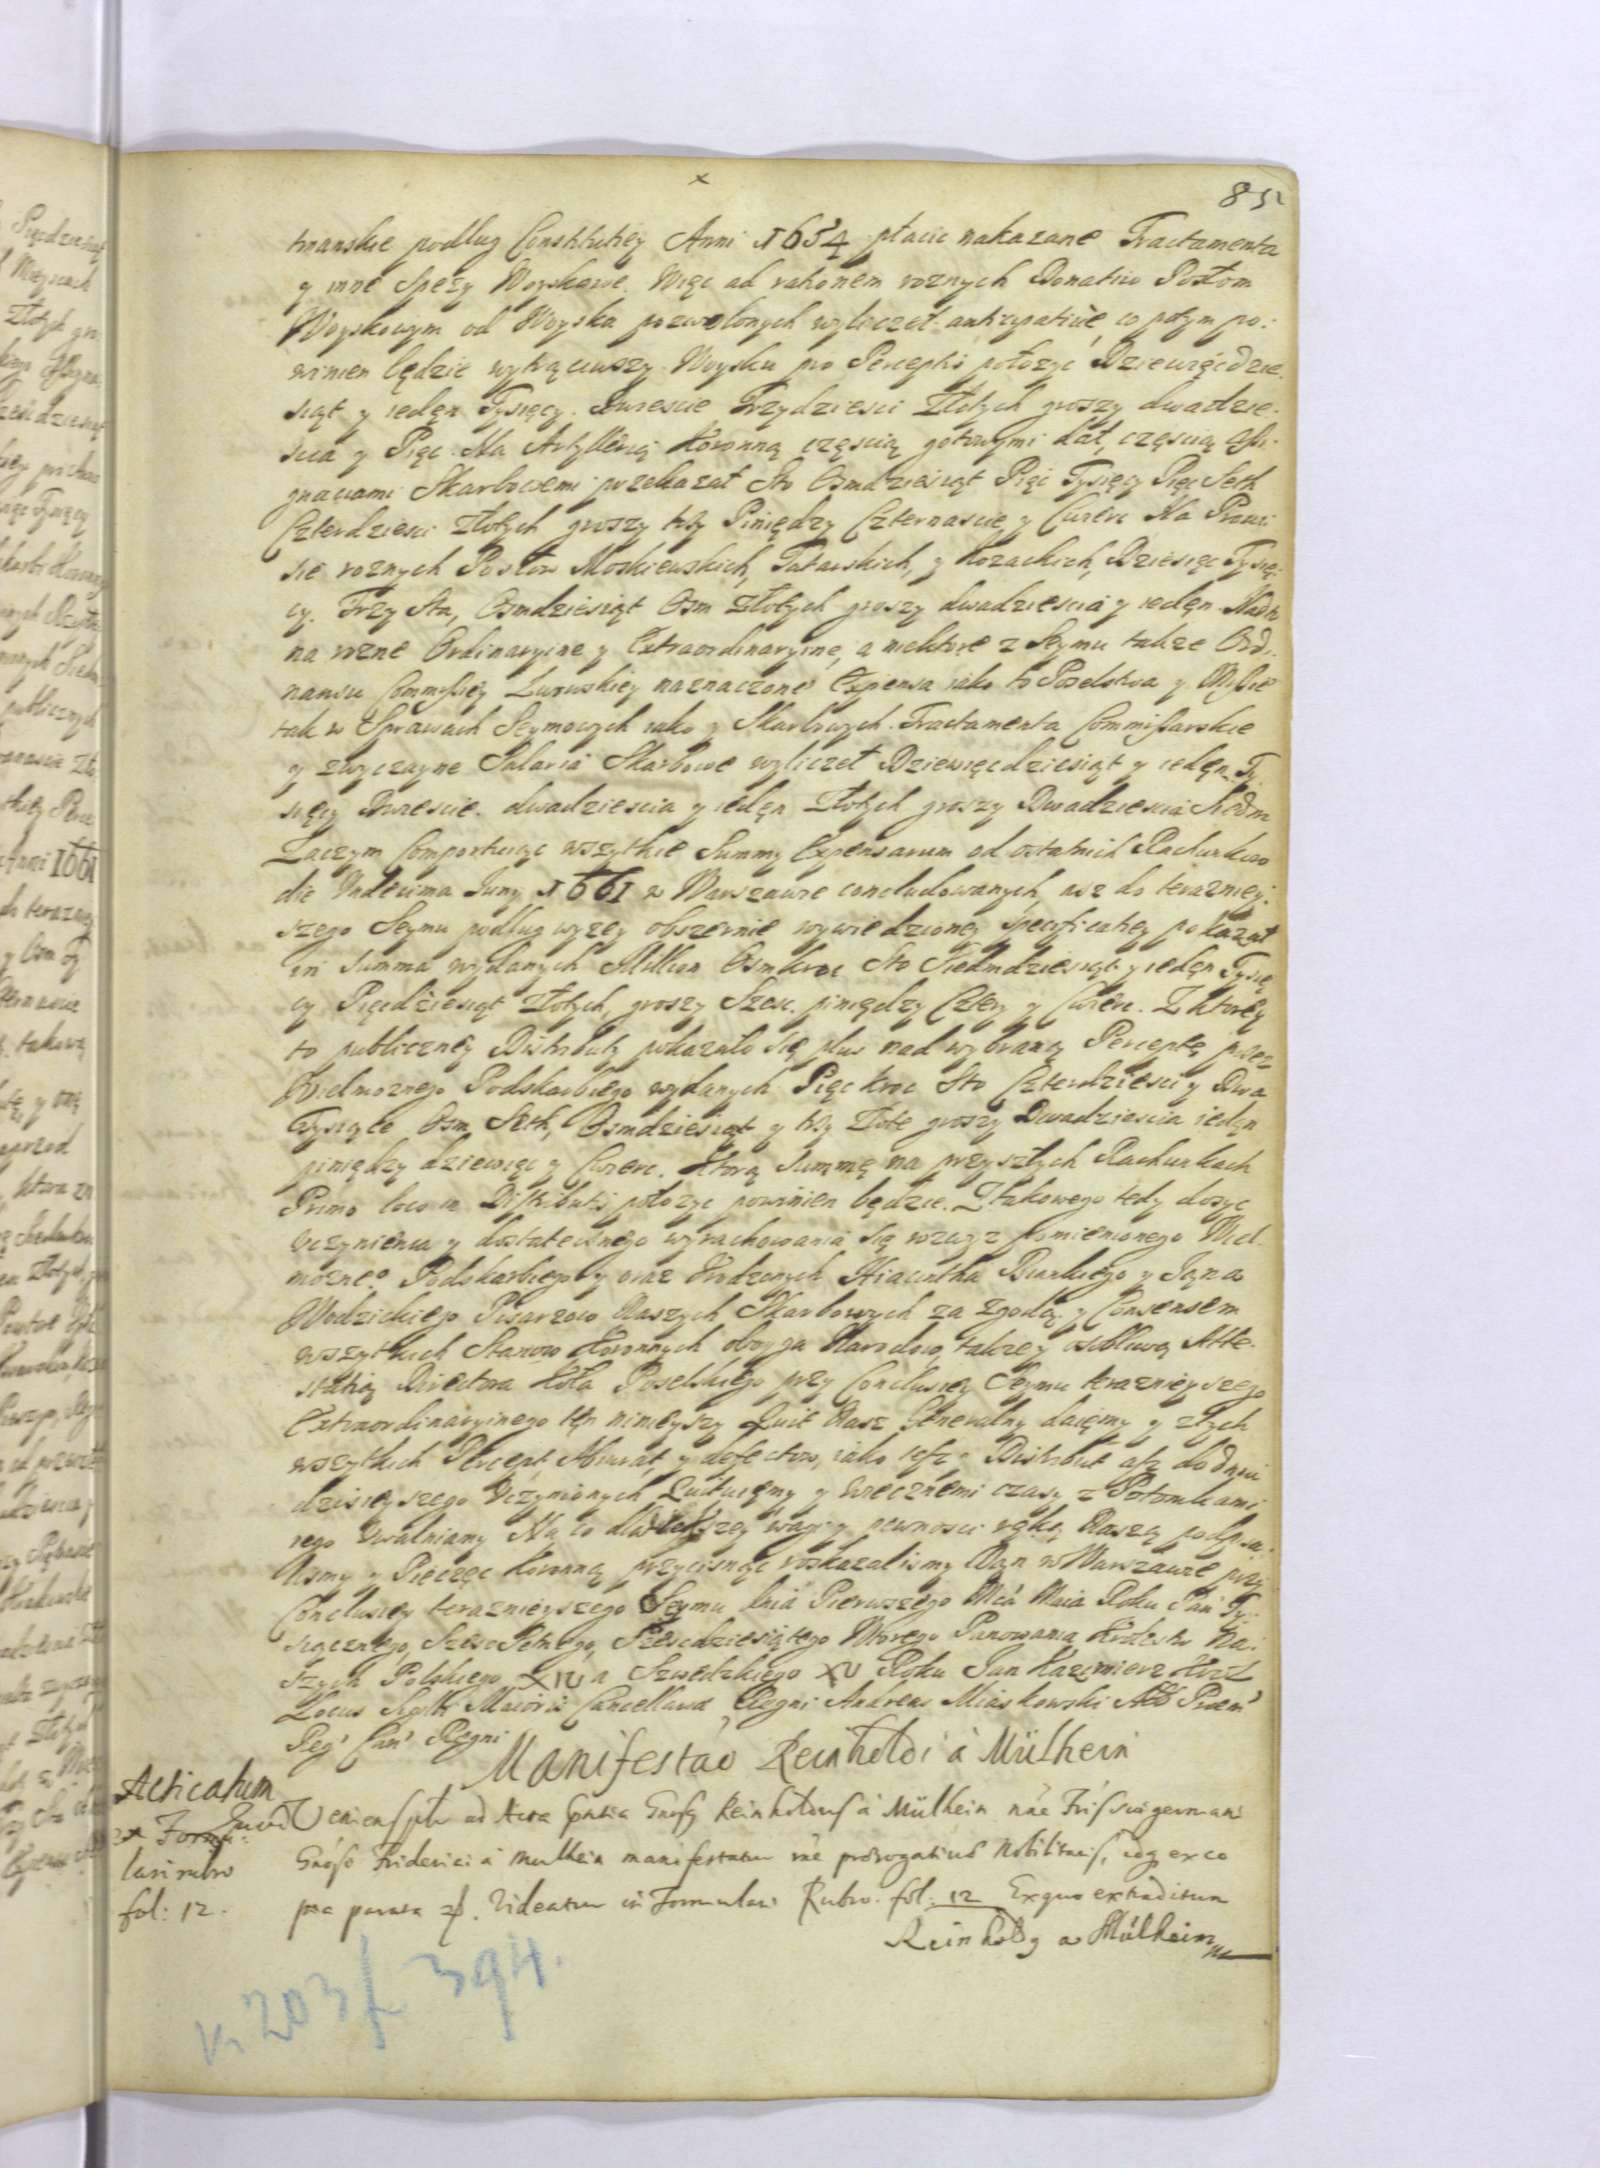 85
tmanskie podług Constitutiey Anni 1654 płacic nakazane Tractamenta
y inne Spezy Woyskowe. Więc ad rationem roznych Donatiw Posłom
Woyskowym od Woyska pozwolonych wyliczeł anticipative, co potym po:
winien będzie wytrąciwszy Woysku pro Perceptis położyc Dziewięcdzie,
siąt y ieden Tysięcy. Dwiescie Trzydziesci Złotych groszy dwadzie:
scia y Pięc. Na Artyllerią Koronną częscią gotowymi dał, częscią Assi:
gnaciami Skarbowemi przekazał Sto Osmdziesiąt Pięc Tysięcy Pięc Seth
Czterdziesci Złotych groszy trzy Piniędzy Czternascie y Cwierc Na Prowi
sie roznych Posłow Moskiewskich, Tatarskich, y Kozackich, Dziesięc Tysię:
cy. Trzy Sta, Osmdziesiąt Osm Złotych groszy dwadziescia y ieden. Nadto
na rozne Ordinaryine y Extraordinaryine, a niektore z Seymu także Ordi:
nansu Commissiey Lwowskiey naznaczone Expensa iako to Poselstwa y Missie
tak w Sprawach Seymowych iako y Skarbowych. Tractamenta Commissarskie
y zwyczayne Salaria Skarbowe wyliczeł Dziewięcdziesiąt y ieden Ty.
sięcy Dwiescie. dwadziescia y ieden Złotych groszy Dwadziescia Siedm
Zaczym Comportuiąc wszytkie Summy Expensarum od ostatnich Rachunkow
die Undecima Juny 1661 w Warszawie concludowanych, asz do terazniey:
szego Seymu podług wyzey obszernie wywiedzioney specificatiey pokazał
in Summa wydanych Million Osmkroc Sto Siedmdziesiąt y ieden Tysię
cy Pięcdziesiąt Złotych, groszy Szesc. piniędzy Cztery y Cwierc. Z ktorey
to publiczney Distributy pokazało się plus nad wybraną Perceptę przez
Wielmoznego Podskarbiego wydanych Pięc kroc Sto Czterdziesci y Dwa
Tysiące Osm Seth, Osmdziesiąt y trzy Złote groszy Dwadziescia ieden
piniędzy dziewięc y Cwierc. Ktorą Summę na przyszłych Rachunkach
Primo loco in Distributis położyc powinien będzie. Z takowego tedy dosyc
uczynienia y dostatecznego wyrachowania się wzwyz pomienionego Wiel.
mozneo Podskarbiego y oraz Urodzonych Hiacintha y Jana
Wodzickiego Pisarzow Naszych Skarbowych za zgodą y Consensem
wszytkich Stanow Koronnych oboyga Narodow, także y osobliwą Atte.
statią Directora Koła Poselskiego przy Conclusiey Seymu teraznieyszego
Extraordinaryinego ten ninieyszy Quit Nasz Generalny daiemy y z tych
wszytkich Percept, y defectow, iako tesz y Distribut asz do dnia
dzisieyszego uczynionych Quituiemy y wiecznemi czasy z Potomkami
iego Uwalniamy Na co dla więtszey wagi y pewnosci ręką Naszą podpisa:
lismy y Pieczęc Koronną przycisnąc roskazalismy Dan w Warszawie przy
Conclusiey teraznieyszego Seymu dnia Pierwszego Mca Maia Roku Pan Ty:
siącznego, Szesc Setnego, Szescdziesiątego Wtorego Panowania Krolestw Na:
szych Polskiego XIV a Szwedzkiego XV Roku Jan Kazimierz Krol
Locus Sigilli Maioris Cancellariae Regni Andreas Miaskowski
Reg Can Regni
Manifestao Reinholdi à Mülhein
Acticatum
fol: 12.
Veniens ad Acta Reinholdus à Mülhein germani
Friderici à Mulhein manifestatur nobilitatis,
Videatur in Formulari Rubro. fol: 12 Ex quo extraditum
Reinhold a Mülheim
K 203 f 394.